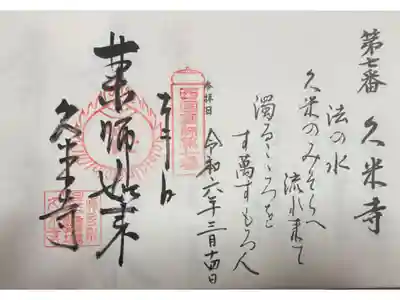 第七番 久米寺
法の水
久米のみそらへ
流れ来て
濁るこゝろを
す萬すもろ人
参拝日 令和六年三月十四日
薬師如来
久米寺